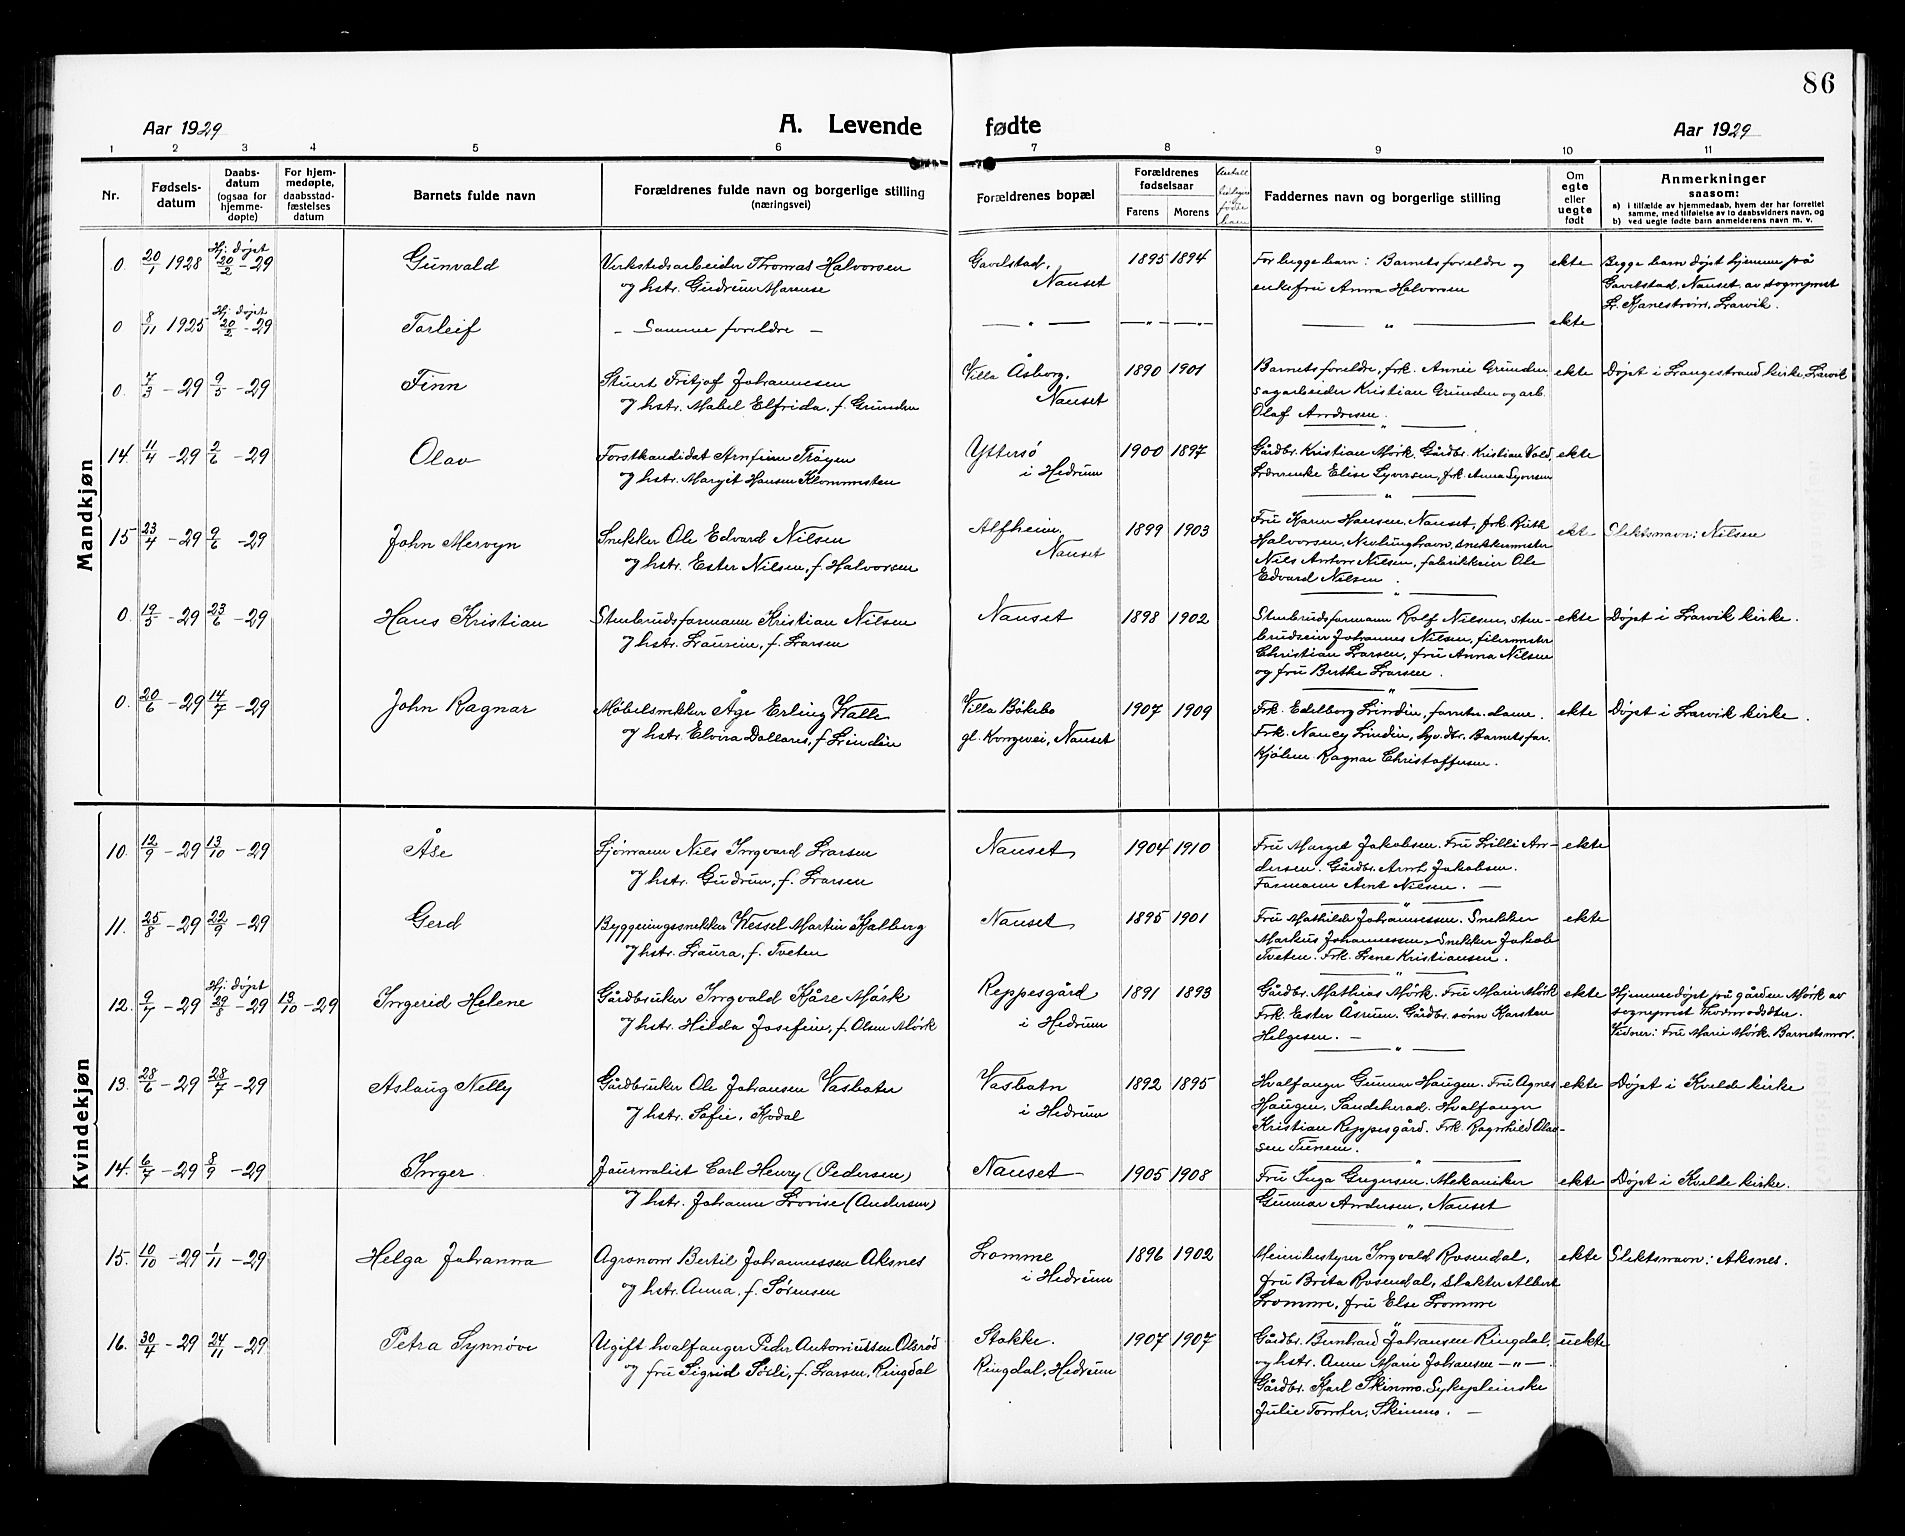 86
Aar 1929 A. Levende fødte Aar 1929
1 2 3 4 5 6 7 8 9 10 11
Nr. Fødsels-datum Daabs-datum (ogsaa for hjemme-døpte) For hjem-medøpte, daabsstad-fæstelses datum Barnets fulde navn Forældrenes fulde navn og borgerlige stilling (næringsvei) Forældrenes bopæl Forældrenes fødselsaar Farens Morens Faddernes navn og borgerlige stilling Om egte eller uegte født Anmerkninger saasom:
a) i tilfælde av hjemmedaab, hvem der har forrettet samme, med tilføielse av to daabsvidners navn, og
b) ved uegte fødte barn anmelderens navn m. v.
Mandkjøn
0. 20/1 1928 Hj. døpt 20/2 -29 Gunvald Verkstedsarbeider Thomas Halvorsen Gavelstad, 1895 1894 For begge barn: Barnets foreldre og ekte Begge barn døpt hjemme på
og hstr. Gudrun Marense Nanset enkefru Anna Halvorsen Gavelstad, Nanset, av sogneprest
Kanestrøm, Larvik.
0 8/11 1925 Hj. døpt 20/2 -29 Torleif – Samme foreldre – — " — — " — — " — ekte
0. 7/3 -29 9/5 -29 Finn Stuert Fritjof Johannesen Villa Åsborg, 1890 1901 Barnets foreldre, frk. Annie Grunden ekte Døpt i Langestrand kirke, Larvik
og hstr. Mabel Elfrida, f. Grunden Nanset sagarbeider Kristian Grunden og arb.
Olaf Andresen.
14. 11/4 -29 2/6 -29 Olav Forstkandidat Arnfinn Trøyen Yttersø 1900 1897 Gårdbr. Kristian Mørk. Gårdbr. Kristian Vold ekte
og hstr. Margit Hansen Klommesten i Hedrum Lærerinke Elise Syversen, frk. Anna Syversen
15 23/4 -29 9/6 -29 John Mervyn Snekker Ole Edvard Nilsen Alfheim. 1899 1903 Fru Karen Hansen, Nanset, frk. Ruth ekt- Slektsnavn: Nilsen
og hstr. Ester Nilsen, f. Halvorsen Nanset Halvorsen, Nevlunghavn, snekkermester
Nils Anton Nilsen, fabrikkeier Ole
Edvard Nilsen.
0. 19/5 -29 23/6 -29 Hans Kristian Stenbrudsformann Kristian Nilsen Nanset 1898 1902 Stenbrudsformann Rolf Nilsen, sten- ekte Døpt i Larvik kirke.
og hstr. Laurine, f. Larsen brudseier Johannes Nilsen, filermester
Christian Larsen, fru Anna Nilsen
og fru Berthe Larsen.
0. 20/6 -29 14/7 -29 John Ragnar Møbelsnekker Åge Erling Walle Villa Bøkebo 1907 1909 Frk. Edelborg Lindén, forretn.dame. ekte Døpt i Larvik kirke.
og hstr. Elvira Dollores, f. Lindén gl. Kongevei, Nanset Frk. Nancy Lindén, syv.dtr. Barnets far.
Ragnar Christoffersen.
Kvindekjøn
10. 12/9 -29 13/10 -29 Åse Sjømann Nils Ingvard Larsen Nanset 1904 1910 Fru Margit Jakobsen. Fru Lilli An- ekte
og hstr. Gudrun, f. Larsen dersen. Gårdbr. Arnt Jakobsen.
Formann Arnt Nilsen. —
11. 25/8 -29 22/9 -29 Gerd Bygningssnekker Wessel Martin Halberg Nanset 1895 1901 Fru Mathilde Johannessen. Snekker ekte
og hstr. Laura, f. Tveten Markus Johannessen, Snekker Jakob
Tveten. Frk. Lene Kristiansen.
12. 9/7 -29 Hj. døpt 29/8 -29 13/10 -29 Ingerid Helene Gårdbruker Ingvald Kåre Mørk Reppesgård 1891 1893 Gårdbr. Mathias Mørk. Fru Marie Mørk ekte Hjemmedøpt på gården Mørk av
og hstr. Hilda Josefine, f. Olsen Mørk i Hedrum Frk. Ester Asrum. Gårdbr. sønn Karsten sogneprest Thormodsæter.
Helgesen. — Vidner: Fru Marie Mørk. Barnets mor.
13. 28/6 -29 28/7 -29 Aslaug Nelly Gårdbruker Ole Johansen Vasbotn Vasbotn 1892 1895 Hvalfanger Gunnar Haugen. Fru Agnes ekte Døpt i Kvelde kirke
og hstr. Sofie, Kodal i Hedrum Haugen, Sandeherad. Hvalfanger
Kristian Reppesgård. Frk. Ragnhild Olav-
sen
14. 6/7 -29 8/9 -29 Inger. Journalist Carl Henry (Pedersen) Nanset 1905 1908 Fru Inga Gregersen. Mekaniker ekte Døpt i Kvelde kirke.
og hstr. Johanne Lovise (Andersen) Gunnar Andersen, Nanset
15. 10/10 -29 1/11 -29 Helga Johanna Agronom Bertil Johannessen Aksnes Lomme 1896 1902 Meieribestyrer Ingvald Rosendal, ekte Slektsnavn: Aksnes.
og hstr. Anna, f. Sørensen i Hedrum fru Brita Rosendal, slakter Albert
Lomme, fru Else Lomme
16. 30/4 -29 24/11 -29 Petra Synnøve Ugift hvalfanger Peder Antoniussen Olsrød Stokke. 1907 1907 Gårdbr. Bernhard Johansen Ringdal, uekte
og fru Sigrid Søsli, f. Larsen, Ringdal Ringdal, Hedrum og hstr. Anne Marie Johansen — " —.
Gårdbr. Karl Skinmo. Sykepleierske
Julie Tomter, Skinmo. —